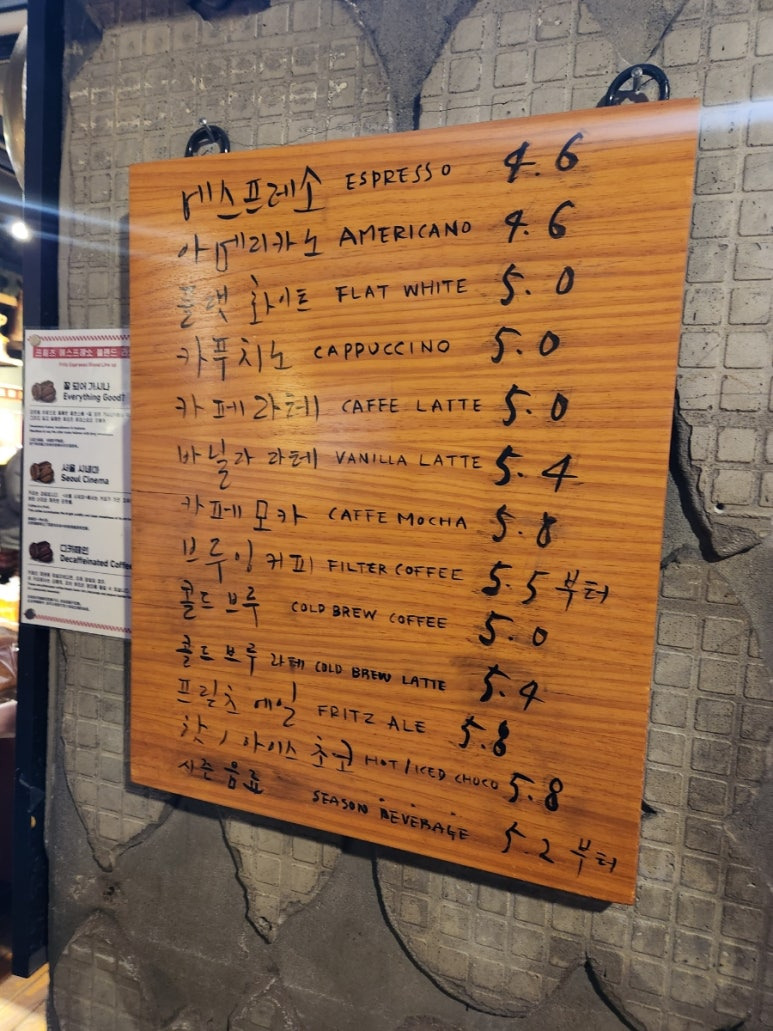 에스프레소 ESPRESSO 4.6
아메리카노 AMERICANO 4.6
플랫 화이트 FLAT WHITE 5.0
카푸치노 CAPPUCCINO 5.0
카페라떼 CAFFE LATTE 5.0
바닐라 라떼 VANILLA LATTE 5.4
카페모카 CAFFE MOCHA 5.8
브루잉 커피 FILTER COFFEE 5.5 부터
콜드 브루 COLD BREW COFFEE 5.0
콜드 브루 라떼 COLD BREW LATTE 5.4
프릳츠 에일 FRITZ ALE 5.8
핫 / 아이스 초코 HOT / ICED CHOCO 5.8
시즌 음료 SEASON BEVERAGE 5.2 부터
프릳츠 에스프레소 블렌드
Fritz Espresso Blend Line up
잘 되어 가시나
Everything Good?
서울 시네마
Seoul Cinema
디카페인
Decaffeinated Coffee